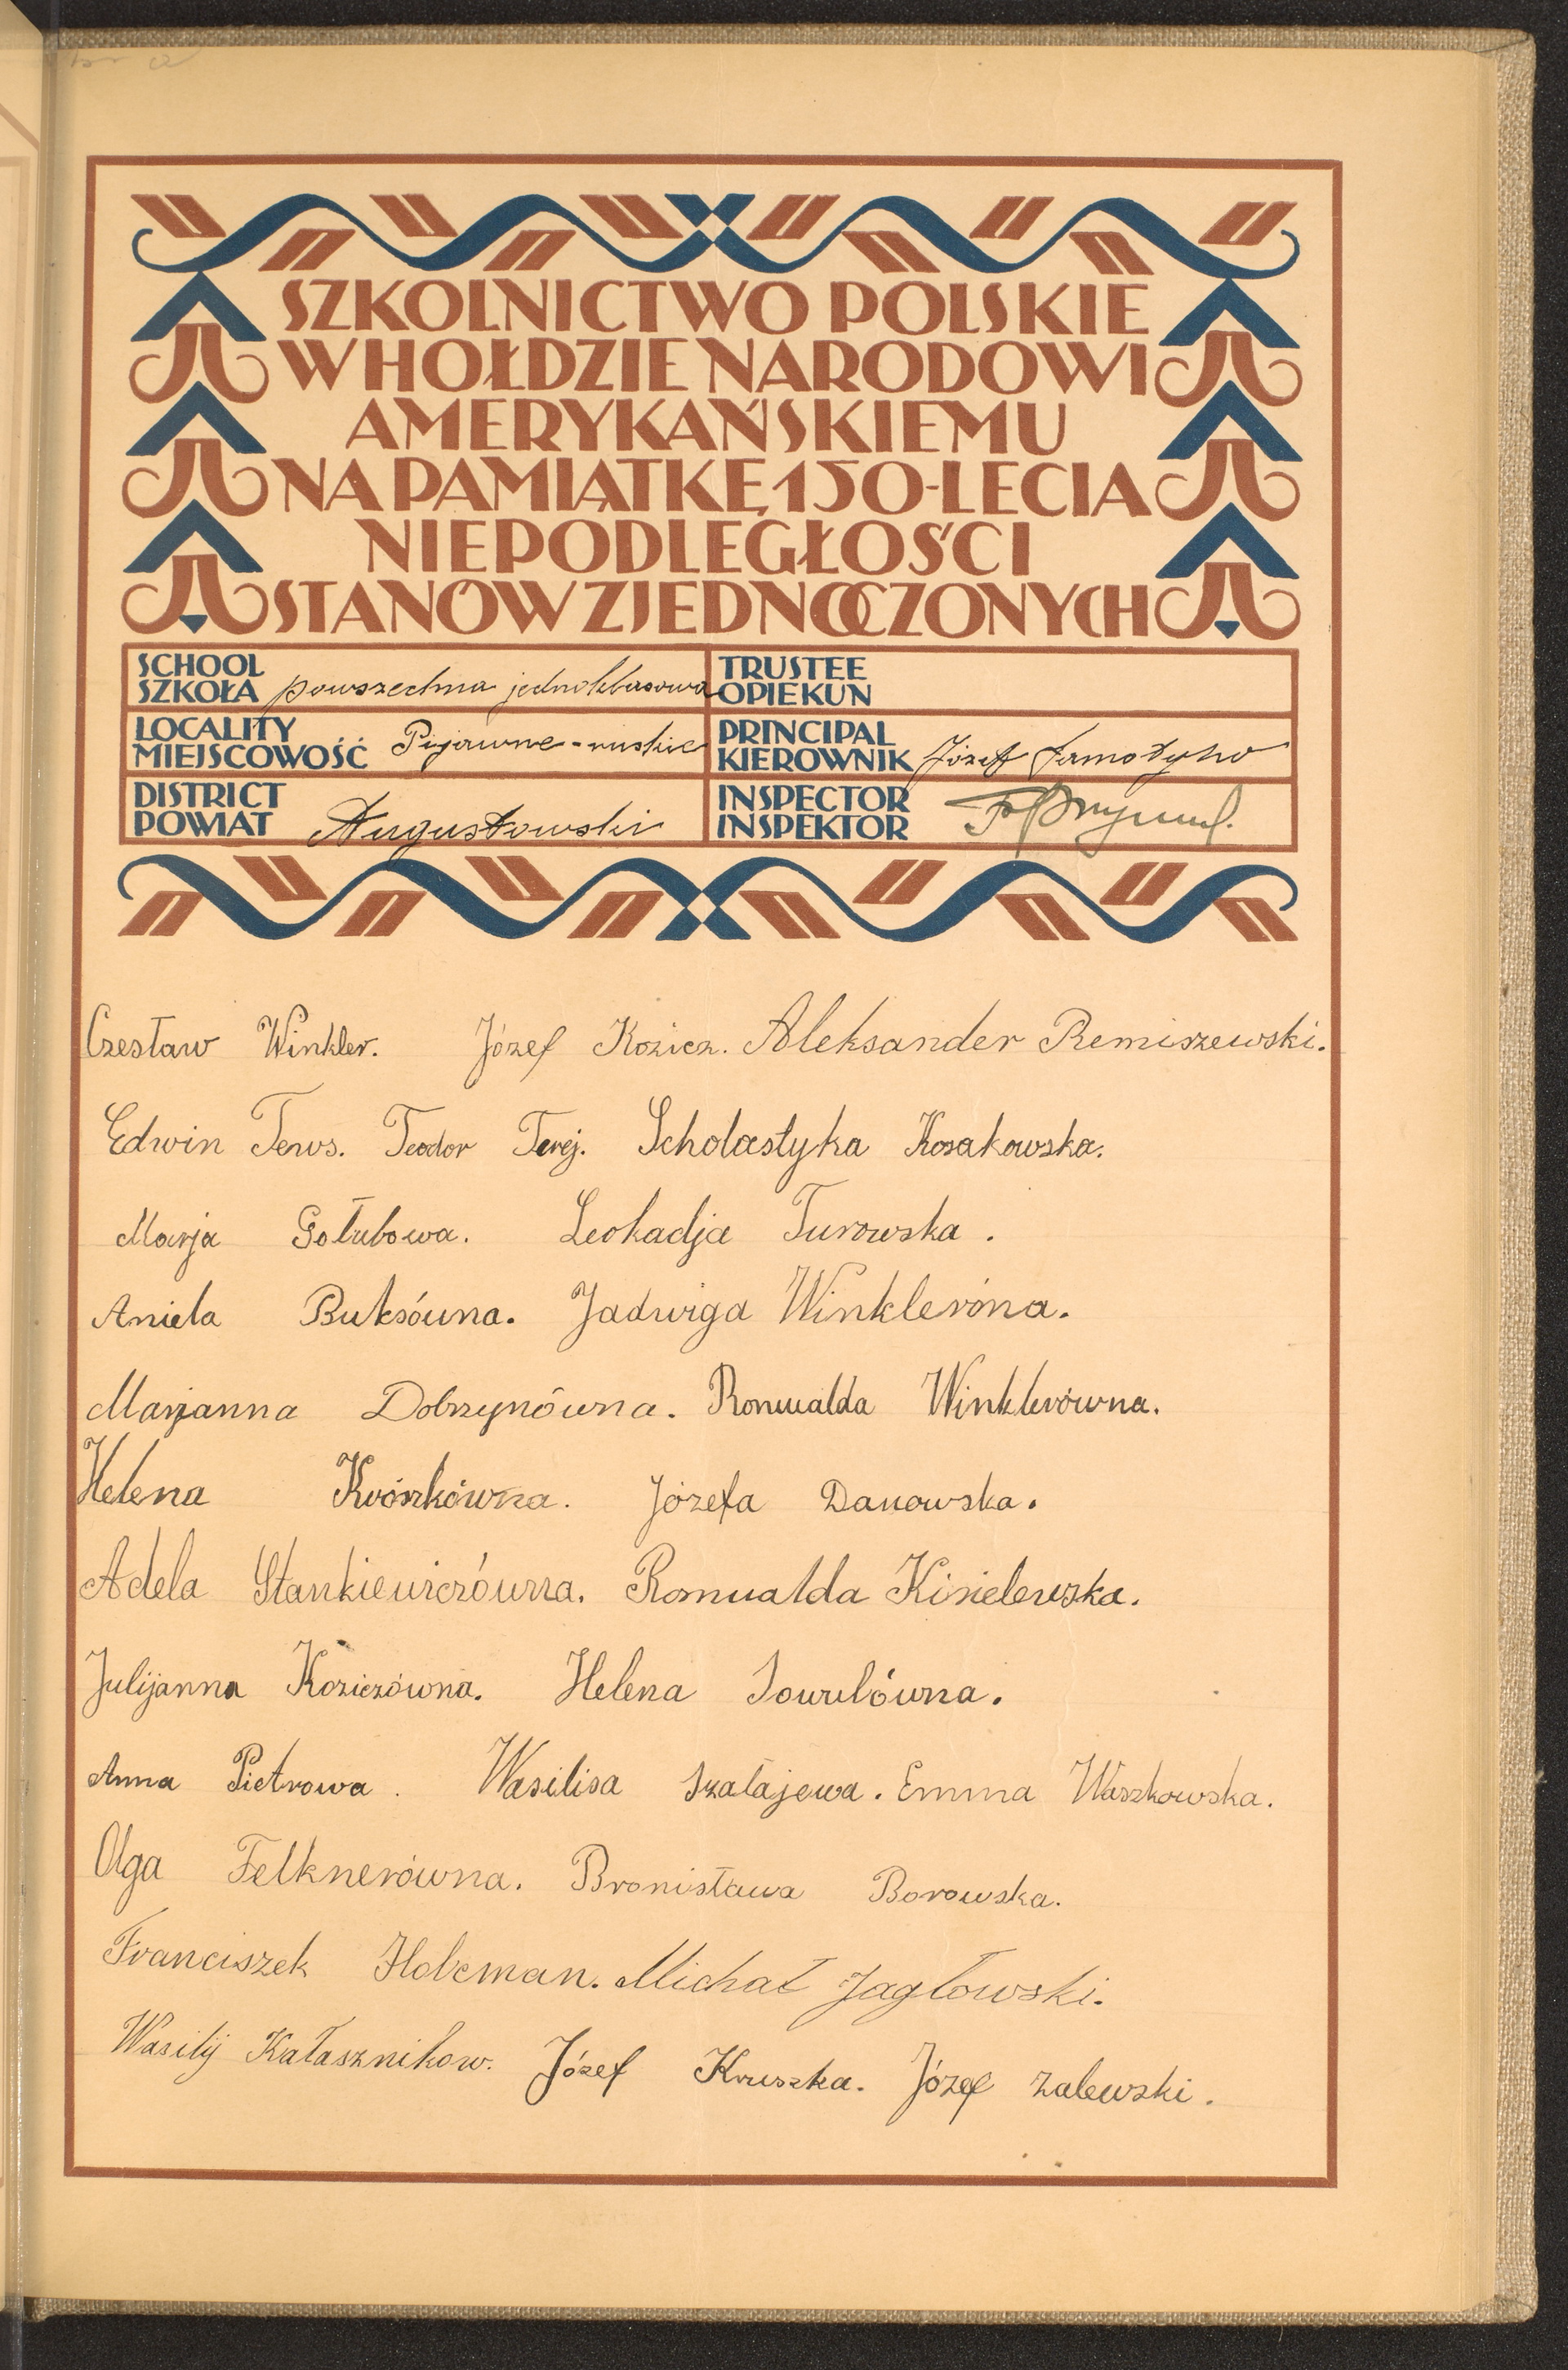 SZKOLNICTWO POLSKIE
W HOŁDZIE NARODOWI
AMERYKAŃSKIEMU
NA PAMIĄTKĘ 150-LECIA
NIEPODLEGŁOŚCI
STANÓW ZJEDNOCZONYCH
SCHOOL
SZKOŁA powszechna jednoklasowa
TRUSTEE
OPIEKUN
LOCALITY
MIEJSCOWOŚĆ Pijawne-ruskie
PRINCIPAL
KIEROWNIK Józef
DISTRICT
POWIAT Augustowski
INSPECTOR
INSPEKTOR
Czesław Winkler. Józef Kozicz. Aleksander Remiszewski.
Edwin Tews. Teodor Terej. Scholastyka Kosakowska.
Marja Gołubowa. Leokadja Turowska.
Aniela Buksówna. Jadwiga Winkleróna.
Marjanna Dobrzynówna. Romualda Winklerówna.
Helena Krószkówna. Józefa Danowska.
Adela Stankiewiczówna. Romualda Kisielewska.
Julijanna Koziczówna. Helena Sowulówna.
Anna Pietrowa. Wasilisa Szałajewa. Emma Waszkowska.
Olga Felknerówna. Bronisława Borowska.
Franciszek Holcman. Michał Jagłowski.
Wasilij Kałasznikow. Józef Kruszka. Józef Zalewski.